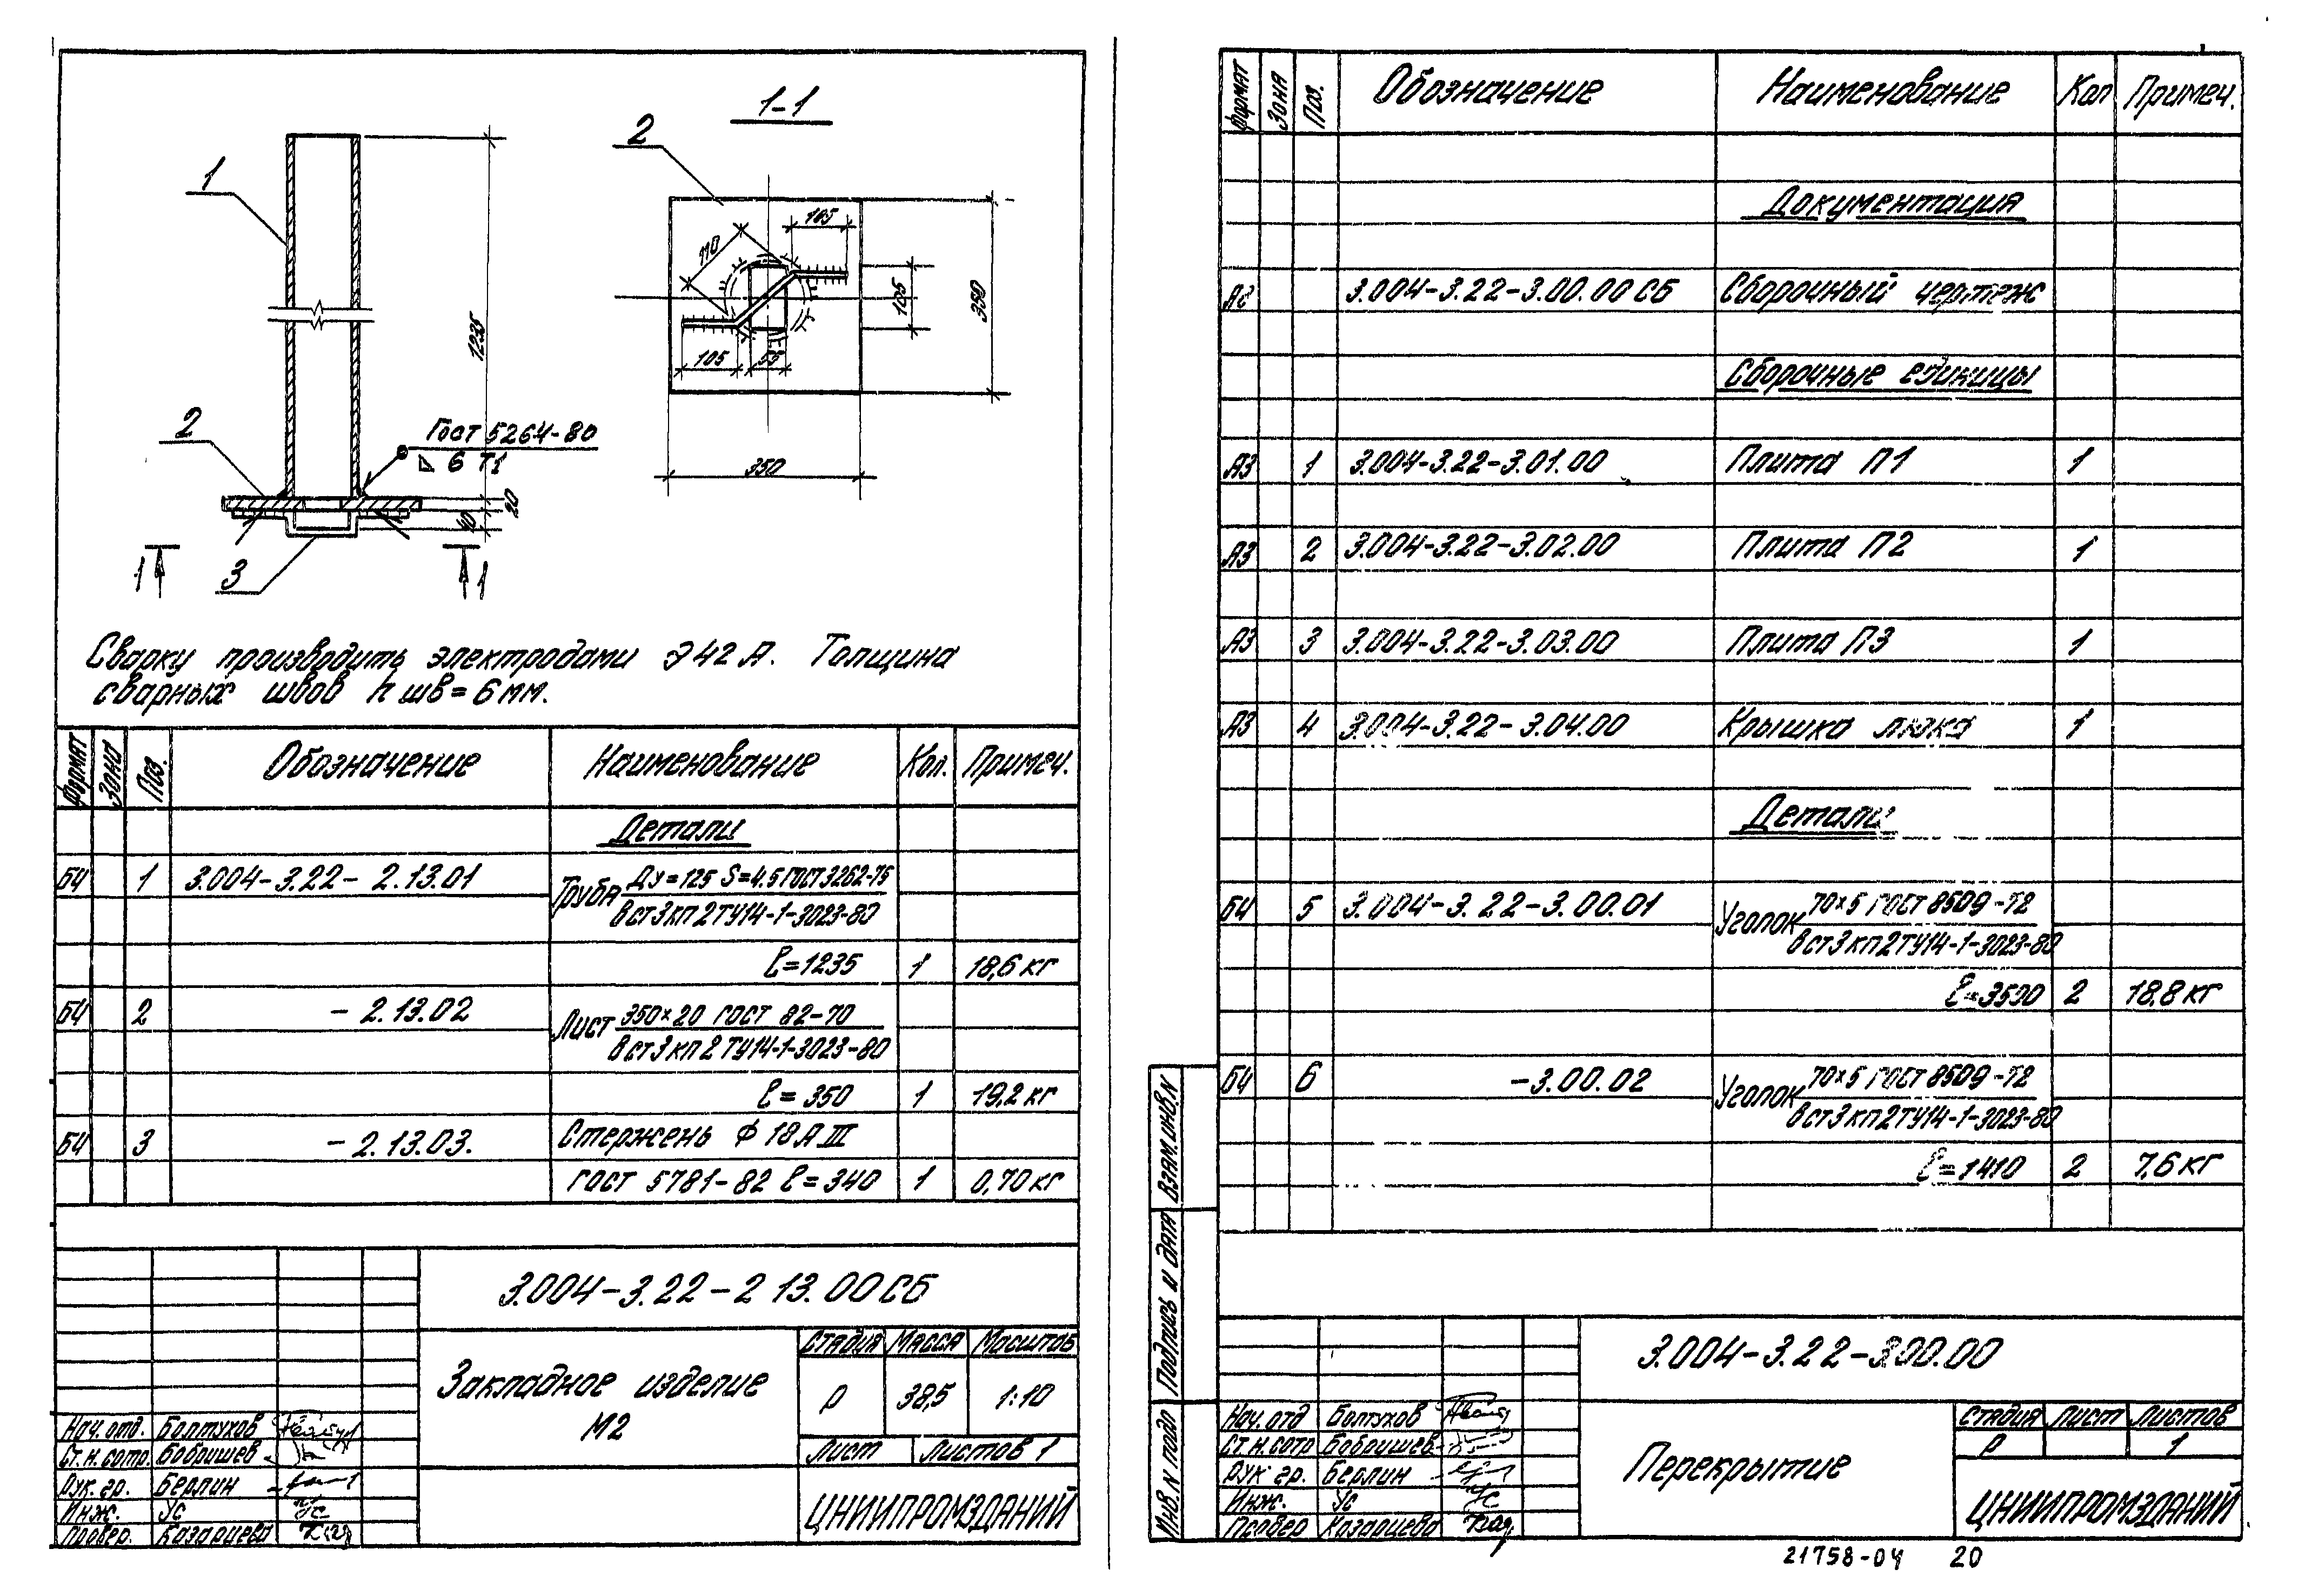 1-1
1
2
2
3
1
1
1235
20
40
ГОСТ 5264-80
6 Т1
110
105
105
350
105
55
350
Сварку производить электродами Э42А. Толщина
сварных швов h шв = 6 мм.
Формат Зона Поз. Обозначение Наименование Кол. Примеч.
Детали
БЧ 1 3.004-3.22- 2.13.01 Труба Ду=125 S=4.5 ГОСТ 3262-75
В ст3 кп 2 ТУ14-1-3023-80
ℓ=1235 1 18,6 кг
БЧ 2 - 2.13.02 Лист 350×20 ГОСТ 82-70
В ст3 кп 2 ТУ14-1-3023-80
ℓ = 350 1 19,2 кг
БЧ 3 - 2.13.03. Стержень Ф 18 А III
ГОСТ 5781-82 ℓ=340 1 0,70 кг
3.004-3.22-2 13.00 СБ
Закладное изделие
М2
Стадия Масса Масштаб
Р 38,5 1:10
Лист Листов 1
ЦНИИПРОМЗДАНИЙ
Нач. отд. Болтухов
Ст. н. сотр. Бобришев
Рук. гр. Берлин
Инж. Ус
Провер. Казарцева
Формат Зона Поз. Обозначение Наименование Кол Примеч.
Документация
А2 3.004-3.22-3.00.00 СБ Сборочный чертеж
Сборочные единицы
А3 1 3.004-3.22-3.01.00 Плита П1 1
А3 2 3.004-3.22-3.02.00 Плита П2 1
А3 3 3.004-3.22-3.03.00 Плита П3 1
А3 4 3.004-3.22-3.04.00 Крышка люка 1
Детали
БЧ 5 3.004-3.22-3.00.01 Уголок 70×5 ГОСТ 8509-72
В ст3 кп2 ТУ14-1-3023-80
ℓ=3500 2 18,8 кг
БЧ 6 -3.00.02 Уголок 70×5 ГОСТ 8509-72
В ст3 кп2 ТУ14-1-3023-80
ℓ=1410 2 7,6 кг
Инв. N подл Подпись и дата Взам. инв. N
3.004-3.22-3.00.00
Перекрытие
Стадия Лист Листов
Р 1
ЦНИИПРОМЗДАНИЙ
Нач. отд Болтухов
Ст. н. сотр Бобришев
Рук гр. Берлин
Инж. Ус
Провер Казарцева
21758-04 20